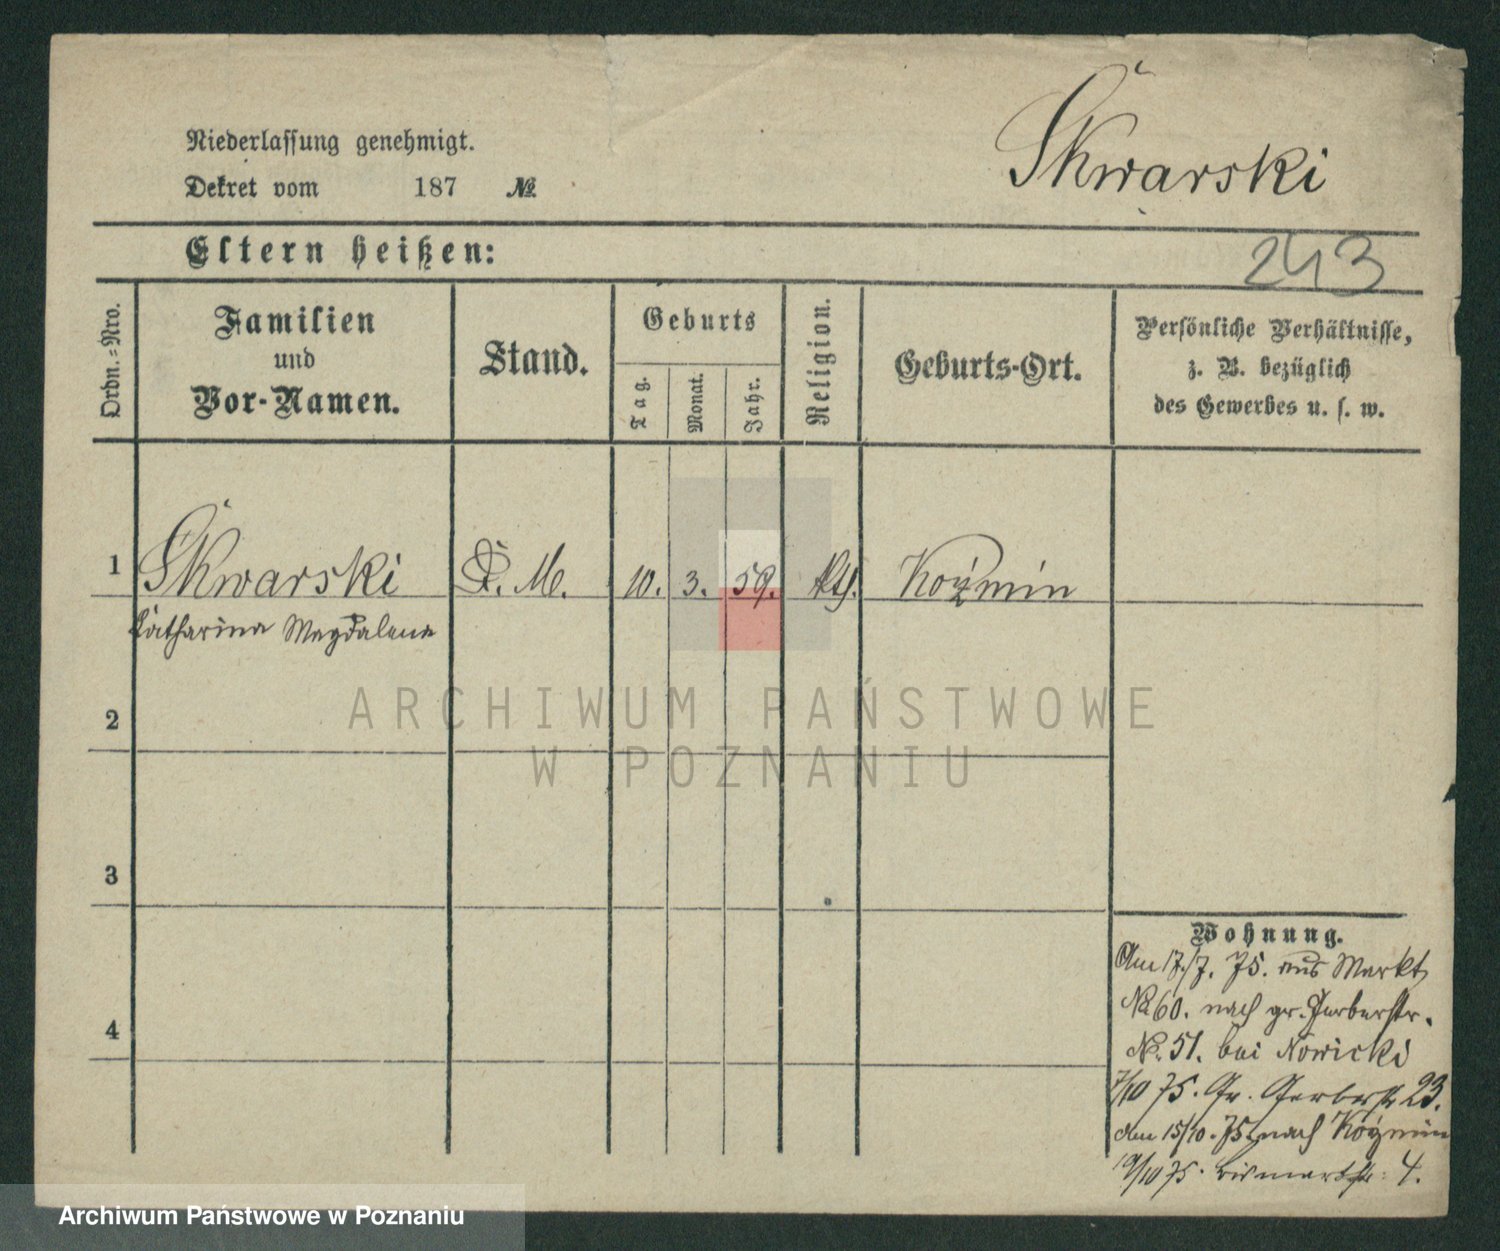 Skwarski
Niederlassung genehmigt.
Dekret vom 187 №
Eltern heißen:
243
Ordn.-Nro.
Familien
und
Vor-Namen.
Stand.
Geburts
Tag.
Monat.
Jahr.
Religion.
Geburts-Ort.
Persönliche Verhältnisse,
z. B. bezüglich
des Gewerbes u. s. w.
1 Skwarski D. M. 10. 3. 59. kth. Koźmin
Catharina Magdalena
2
ARCHIWUM PAŃSTWOWE
W POZNANIU
3
4
Wohnung.
Am 17./7. 75. aus Markt
No 60. nach gr. Gerberstr.
No. 51. bei Nowicki
7/10 75. Gr. Gerberstr 23.
Am 15/10. 75. nach Koźmin
19/10 75. Bismarckstr. 4.
Archiwum Państwowe w Poznaniu